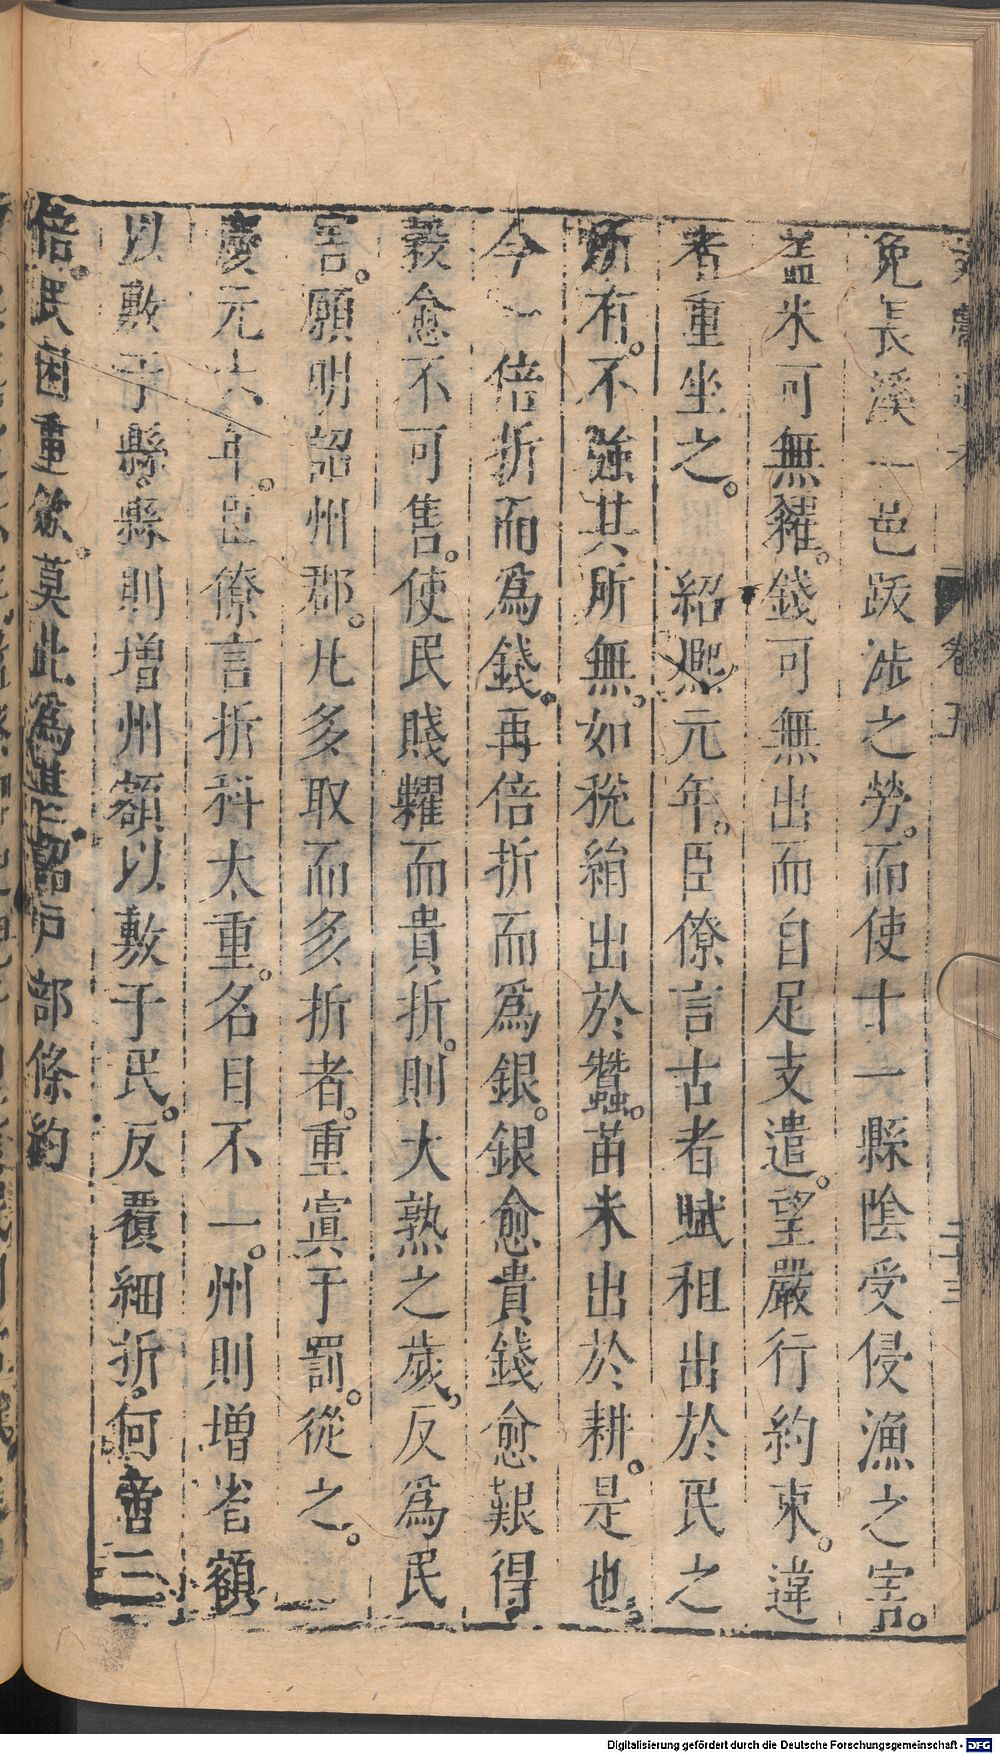 免長溪一邑䟦涉之勞。而使十一縣陰受侵漁之害。
盖米可無糴。錢可無出而自足支遣。望嚴行約束。違
者重坐之。 紹熈元年。臣僚言古者賦租出於民之
所有。不強其所無。如稅絹出於蠶。苗米出於耕。是也。
今一倍折而爲錢。再倍折而爲銀。銀愈貴錢愈艱得
穀愈不可售。使民賤糶而貴折。則大熟之歲。反爲民
害。願明詔州郡。凡多取而多折者。重寘于罰。從之。
慶元六年。臣僚言折科太重。名目不一。州則增省額
以敷于縣。縣則增州額以敷于民。反覆細折。何啻三
倍。民困重歛。莫此爲甚詔戶部條約
卷五
二十三
Digitalisierung gefördert durch die Deutsche Forschungsgemeinschaft - DFG